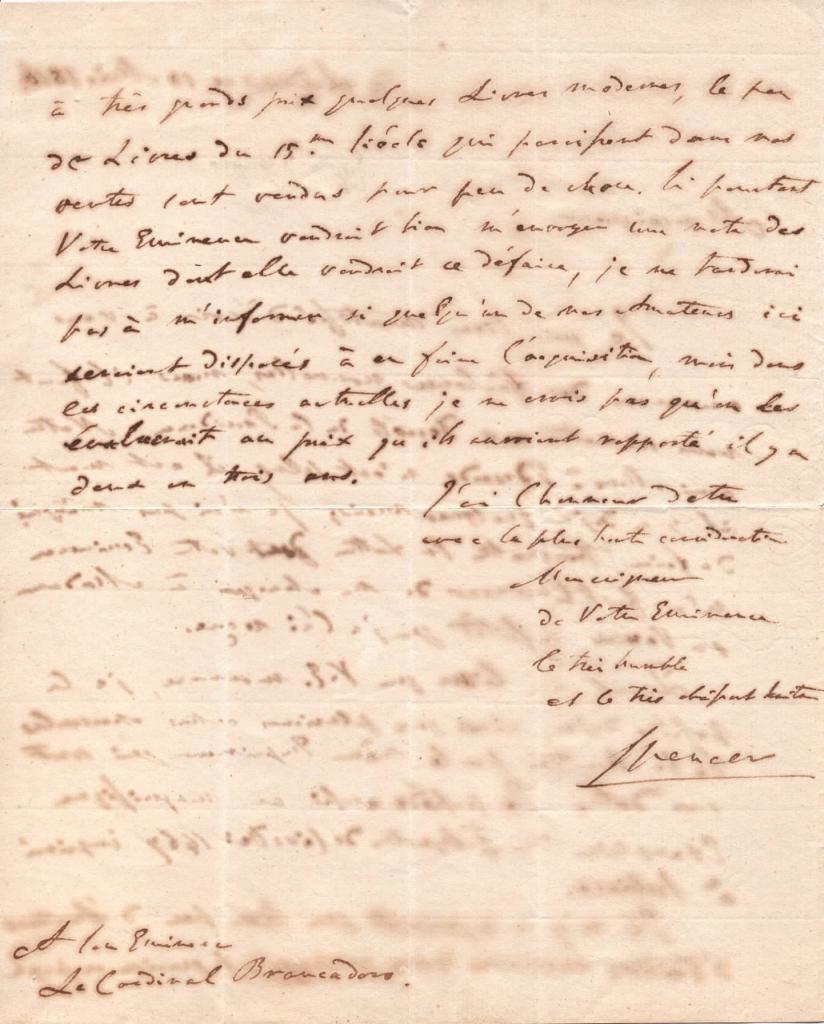 à très grands prix quelques Livres modernes, le peu
de Livres du 15.me Siécle qui paroissent dans nos
ventes sont vendus pour peu de chose. Si pourtant
Votre Eminence voudroit bien m'envoyer une note des
Livres dont elle voudroit se défaire, je ne tarderai
pas à m'informer si quelqu'un de nos Amateurs ici
seroient disposés à en faire l'acquisition, mais dans
les circonstances actuelles je ne crois pas qu'on les
évalueroit au prix qu'ils auroient rapporté il y a
deux ou trois ans.
J'ai l'honneur d'etre
avec la plus haute consideration
Monseigneur
de Votre Eminence
le très humble
et le très obéissant Serviteur
Spencer
A Son Eminence
Le Cardinal Brancadoro.